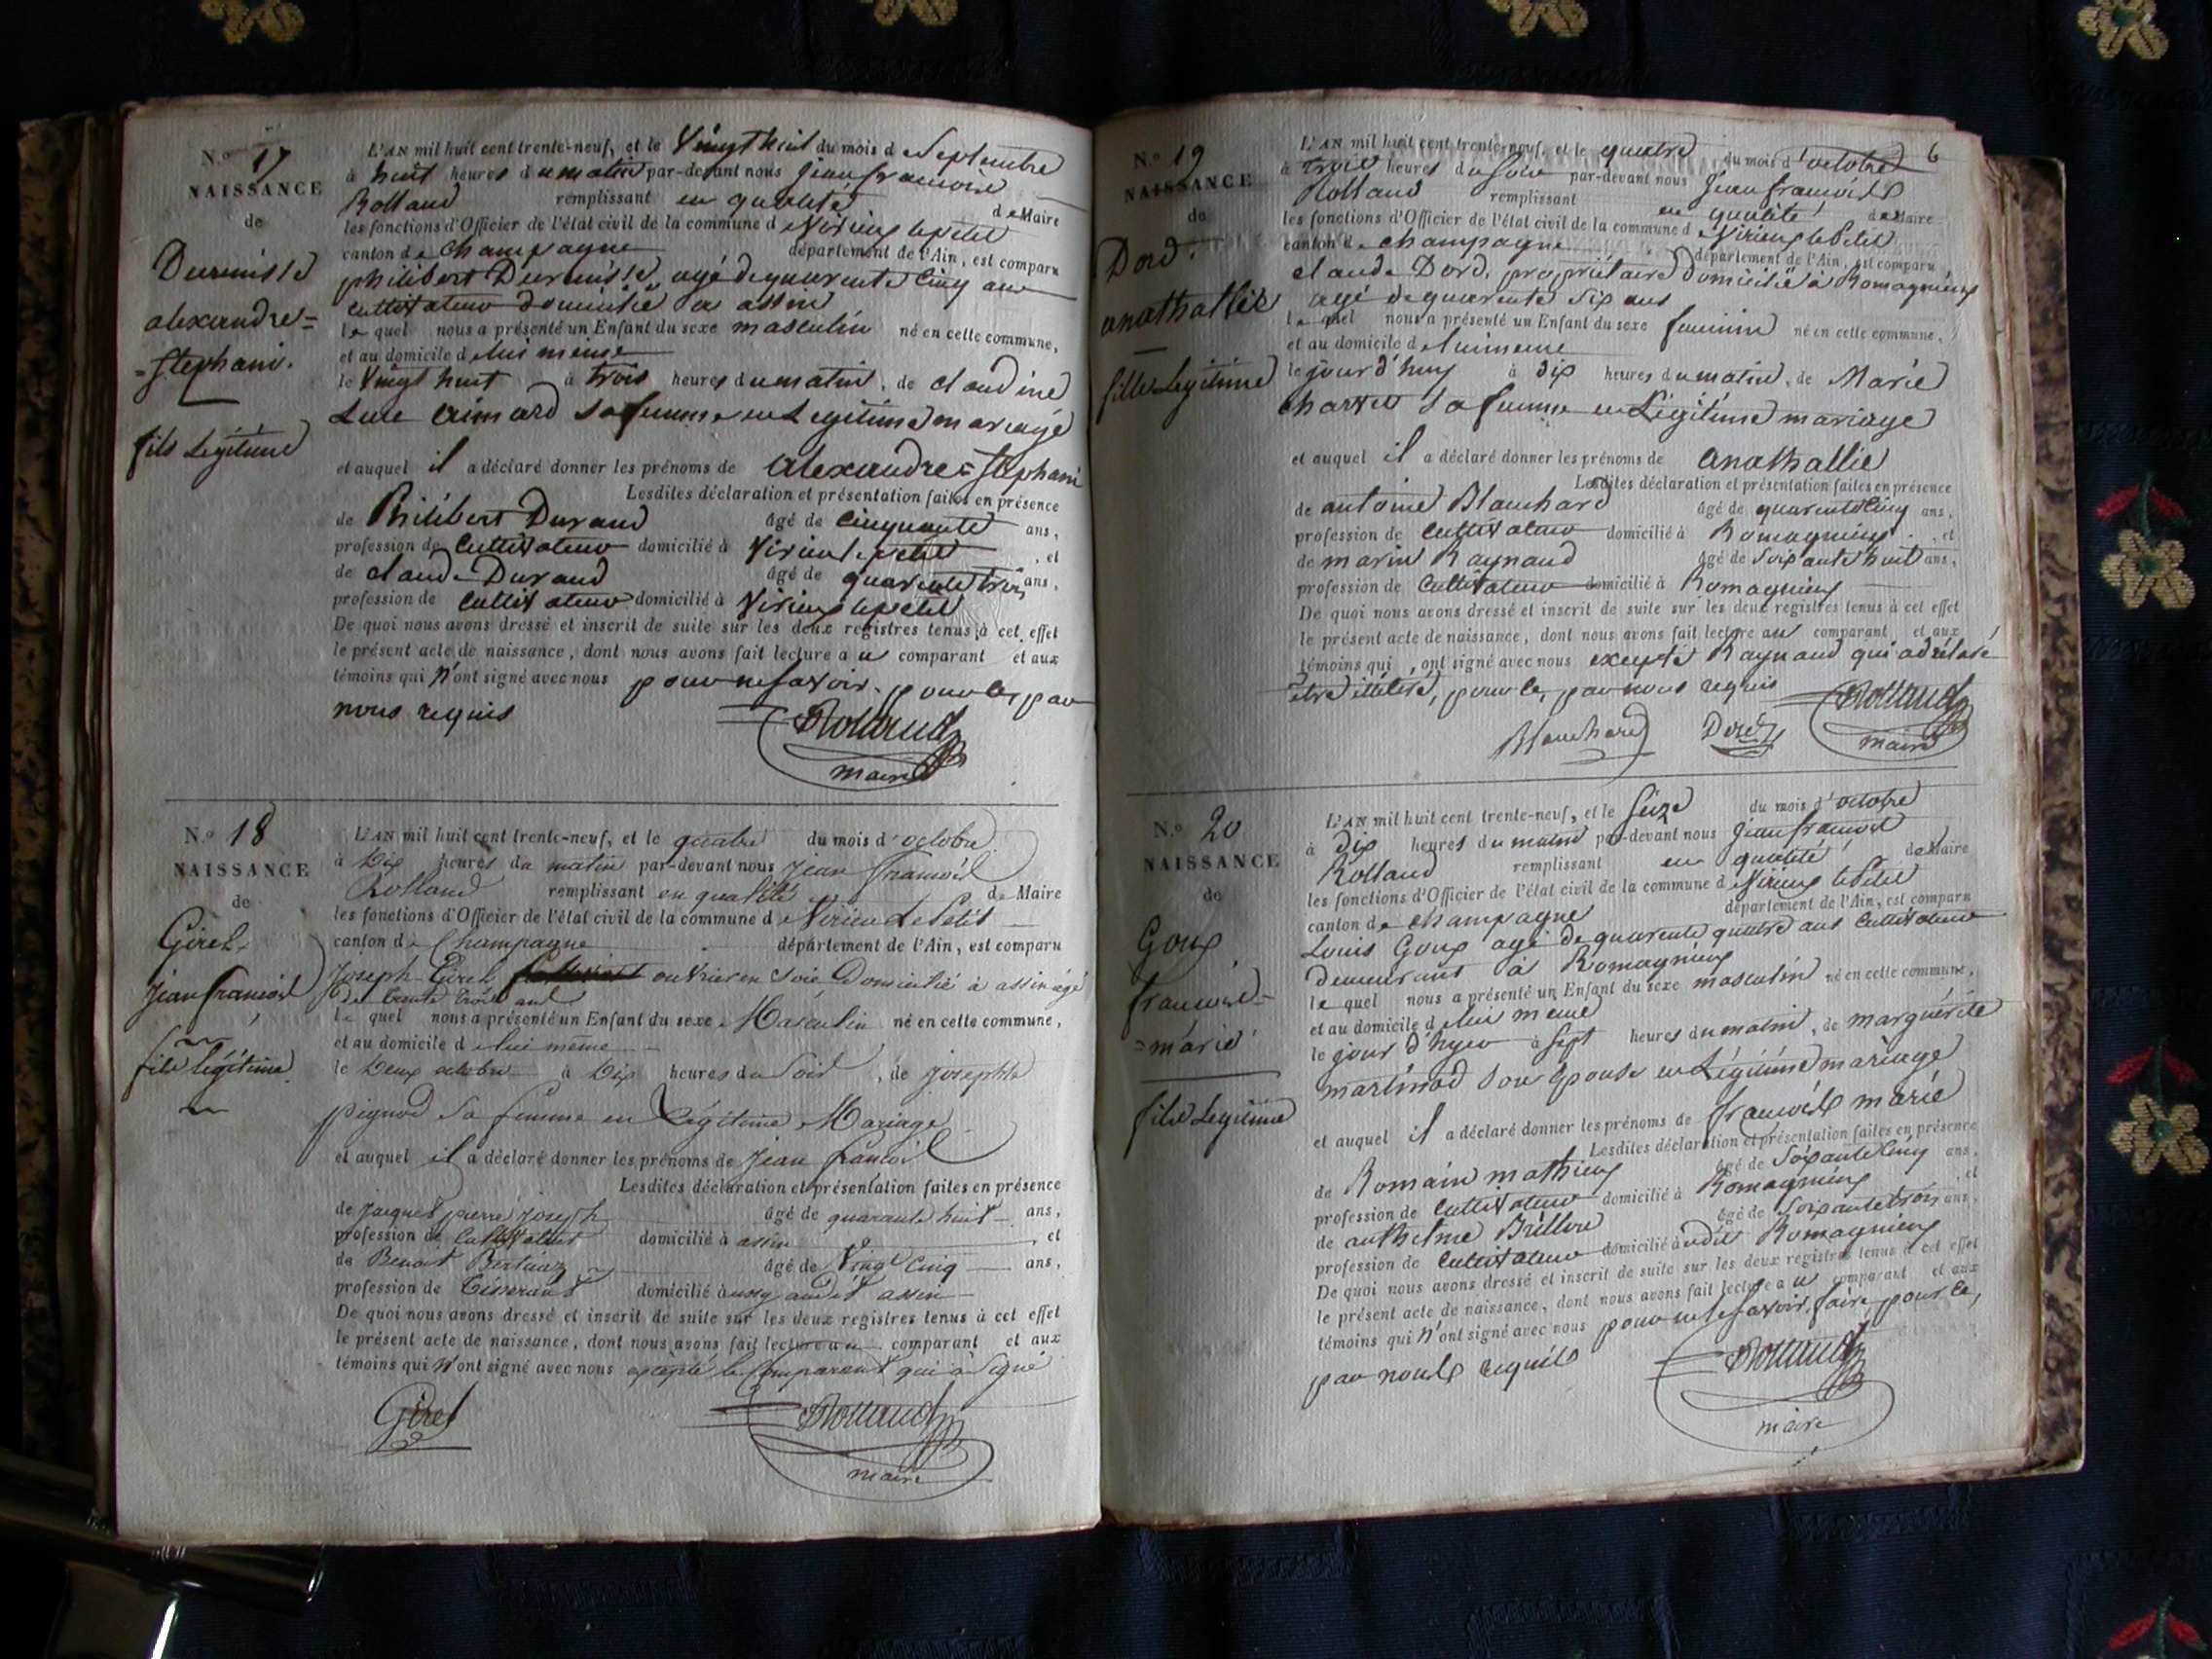 N.o 17
NAISSANCE
de
Durmisse
alexandre =
= stephani.
fils Légitime
L'AN mil huit cent trente-neuf, et le Vingt huit du mois d e Septembre
à huit heures d u matin par-devant nous Jean francois
Rolland remplissant en qualité de Maire
les fonctions d'Officier de l'état civil de la commune d e Virieux le petit
canton d e champagne département de l'Ain, est comparu
philibert Durmisse, agé de quarente cinq ans
cultivateur domicilié a assin
le quel nous a présenté un Enfant du sexe masculin né en cette commune,
et au domicile d e lui meme
le Vingt huit à trois heures du matin, de claudine
Luce aimard sa femme en Legitime mariage
et auquel il a déclaré donner les prénoms de alexandre = stephani
Lesdites déclaration et présentation faites en présence
de Philibert Durand âgé de cinquante ans,
profession de cultivateur domicilié à Virieu le petit, et
de claude Durand âgé de quarente trois ans,
profession de cultivateur domicilié à Virieux le petit
De quoi nous avons dressé et inscrit de suite sur les deux registres tenus à cet effet
le présent acte de naissance, dont nous avons fait lecture a u comparant et aux
témoins qui n'ont signé avec nous pour ne savoir. pour ce, par
nous requis
Rolland
maire
N.o 18
NAISSANCE
de
Giret
Jean francois
fils légitime
L'AN mil huit cent trente-neuf, et le quatre du mois d'octobre
à Dix heures du matin par-devant nous Jean francois
Rolland remplissant en qualité de Maire
les fonctions d'Officier de l'état civil de la commune d e Virieu le Petit
canton de Champagne département de l'Ain, est comparu
Joseph Giret ouvrier en soie Domicilié à assin agé
de trente trois ans
le quel nous a présenté un Enfant du sexe Masculin né en cette commune,
et au domicile d e lui même
le Deux octobre à Dix heures du Soir, de josephte
pignod sa femme en Légitime Mariage
et auquel il a déclaré donner les prénoms de Jean francois
Lesdites déclaration et présentation faites en présence
de jacques pierre joseph âgé de quarante huit ans,
profession de cultivateur domicilié à assin, et
de Benoit Berlioz âgé de Vingt Cinq ans,
profession de Tisserant domicilié aussy audit assin
De quoi nous avons dressé et inscrit de suite sur les deux registres tenus à cet effet
le présent acte de naissance, dont nous avons fait lecture a u comparant et aux
témoins qui n'ont signé avec nous excepté le Comparant qui à Signé
Giret Rolland
maire
6
N.o 19
NAISSANCE
de
Dord.
anathallie
fille Legitime
L'AN mil huit cent trente-neuf, et le quatre du mois d'octobre
à trois heures du soir par-devant nous Jean francois
Rolland remplissant en qualité de Maire
les fonctions d'Officier de l'état civil de la commune d e Virieux le Petit
canton de champagne département de l'Ain, est comparu
claude Dord, propriétaire domicilié à Romagnieux
agé de quarente six ans
le quel nous a présenté un Enfant du sexe feminin né en cette commune,
et au domicile d e lui meme
le jour d'huy à dix heures du matin, de Marie
charvet sa femme en Légitime mariage
et auquel il a déclaré donner les prénoms de anathallie
Lesdites déclaration et présentation faites en présence
de antoine Blanchard âgé de quarente cinq ans,
profession de cultivateur domicilié à Romagnieux, et
de marin Raynaud âgé de soixante huit ans,
profession de cultivateur domicilié à Romagnieux
De quoi nous avons dressé et inscrit de suite sur les deux registres tenus à cet effet
le présent acte de naissance, dont nous avons fait lecture au comparant et aux
témoins qui, ont signé avec nous excepté Raynaud qui a déclaré
etre illétéré, pour ce, par nous requis
Blanchard Dord Rolland
maire
N.o 20
NAISSANCE
de
Goux
francois =
= marie
fils Legitime
L'AN mil huit cent trente-neuf, et le seize du mois d'octobre
à dix heures du matin par-devant nous Jean francois
Rolland remplissant en qualité de Maire
les fonctions d'Officier de l'état civil de la commune d e Virieux le Petit
canton de champagne département de l'Ain, est comparu
Louis Goux agé de quarente quatre ans cultivateur
demeurant à Romagnieux
le quel nous a présenté un Enfant du sexe masculin né en cette commune,
et au domicile d e lui meme
le jour d'hyer à sept heures du matin, de marguérite
martinod son épouse en Légitime mariage
et auquel il a déclaré donner les prénoms de francois marie
Lesdites déclaration et présentation faites en présence
de Romain mathieux âgé de soixante cinq ans,
profession de cultivateur domicilié à Romagnieux, et
de anthelme Brillou âgé de soixante trois ans,
profession de cultivateur domicilié audit Romagnieux
De quoi nous avons dressé et inscrit de suite sur les deux registres tenus à cet effet
le présent acte de naissance, dont nous avons fait lecture a u comparant et aux
témoins qui n'ont signé avec nous pour ne le savoir faire, pour ce,
par nous requis
Rolland
maire